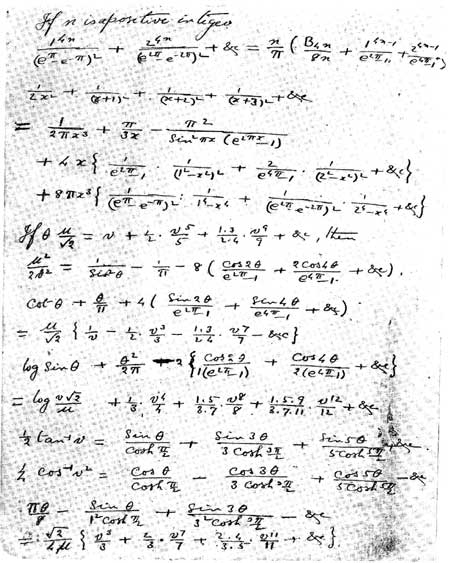 If n is a positive integer
1^{4n}/(e^π-e^{-π})^2 + 2^{4n}/(e^{2π}-e^{-2π})^2 + &c = n/π ( B_{4n}/8n + 1^{4n-1}/(e^{2π}-1) + 2^{4n-1}/(e^{4π}-1) )
1/2x^2 + 1/(x+1)^2 + 1/(x+2)^2 + 1/(x+3)^2 + &c
= 1/2πx^3 + π/3x - π^2/(Sin^2 πx (e^{2πx}-1))
+ 4x { 1/(e^{2π}-1) · 1/(1^2-x^2)^2 + 2/(e^{4π}-1) · 1/(2^2-x^2)^2 + &c }
+ 8πx^3 { 1/(e^π-e^{-π})^2 · 1/(1^4-x^4) + 1/(e^{2π}-e^{-2π})^2 · 1/(2^4-x^4) + &c }
If θ μ/√2 = v + 1/2 · v^5/5 + 1·3/2·4 · v^9/9 + &c, then
μ^2/2v^2 = 1/Sin^2θ - 1/π - 8 ( Cos 2θ/(e^{2π}-1) + 2Cos 4θ/(e^{4π}-1) + &c ).
Cot θ + θ/π + 4 ( Sin 2θ/(e^{2π}-1) + Sin 4θ/(e^{4π}-1) + &c )
= μ/√2 { 1/v - 1/2 · v^3/3 - 1·3/2·4 · v^7/7 - &c }
log Sin θ + θ^2/2π - 2 { Cos 2θ/1(e^{2π}-1) + Cos 4θ/2(e^{4π}-1) + &c }
= log v√2/μ + 1/3 · v^4/4 + 1·5/3·7 · v^8/8 + 1·5·9/3·7·11 · v^{12}/12 + &c
1/2 tan^{-1} v = Sin θ/Cosh π/2 + Sin 3θ/3 Cosh 3π/2 + Sin 5θ/5 Cosh 5π/2 + &c
1/4 Cos^{-1} v^2 = Cos θ/Cosh π/2 - Cos 3θ/3 Cosh 3π/2 + Cos 5θ/5 Cosh 5π/2 - &c
πθ/8 - Sin θ/1^2 Cosh π/2 + Sin 3θ/3^2 Cosh 3π/2 - &c
= √2/4μ { v^3/3 + 2/3 · v^7/7 + 2·4/3·5 · v^{11}/11 + &c }.